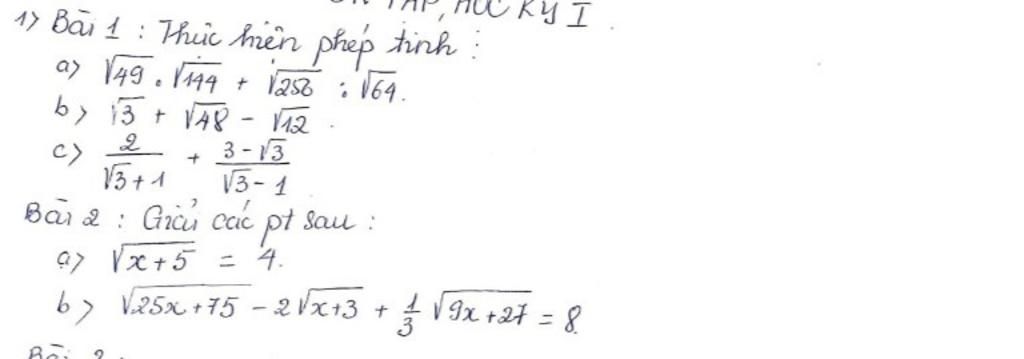 ÔN TẬP, HỌC KỲ I.
1> Bài 1 : Thực hiện phép tính :
a> √49 . √144 + √256 : √64.
b> √3 + √48 - √12.
c> 2/(√3+1) + (3-√3)/(√3-1)
Bài 2 : Giải các pt sau :
a> √(x+5) = 4.
b> √(25x+75) - 2√(x+3) + 1/3 √(9x+27) = 8.